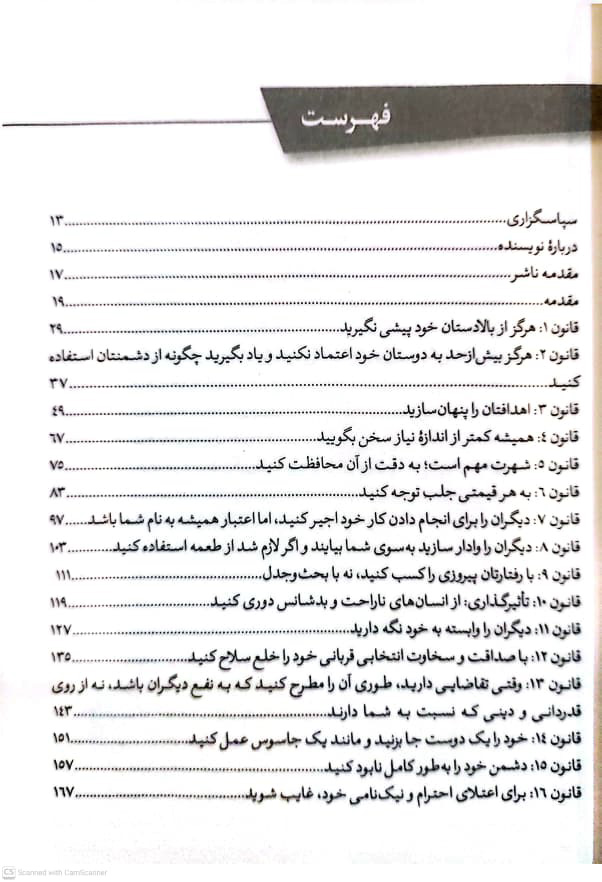 فهرست
سپاسگزاری..............................۱۳
دربارهٔ نویسنده..............................۱۵
مقدمه ناشر..............................۱۷
مقدمه..............................۱۹
قانون ۱: هرگز از بالادستان خود پیشی نگیرید..............................۲۹
قانون ۲: هرگز بیش‌ازحد به دوستان خود اعتماد نکنید و یاد بگیرید چگونه از دشمنتان استفاده
کنید..............................۳۷
قانون ۳: اهدافتان را پنهان سازید..............................۴۹
قانون ۴: همیشه کمتر از اندازهٔ نیاز سخن بگویید..............................۶۷
قانون ۵: شهرت مهم است؛ به دقت از آن محافظت کنید..............................۷۵
قانون ۶: به هر قیمتی جلب توجه کنید..............................۸۳
قانون ۷: دیگران را برای انجام دادن کار خود اجیر کنید، اما اعتبار همیشه به نام شما باشد......۹۷
قانون ۸: دیگران را وادار سازید به‌سوی شما بیایند و اگر لازم شد از طعمه استفاده کنید...........۱۰۳
قانون ۹: با رفتارتان پیروزی را کسب کنید، نه با بحث‌وجدل..............................۱۱۱
قانون ۱۰: تأثیرگذاری: از انسان‌های ناراحت و بدشانس دوری کنید..............................۱۱۹
قانون ۱۱: دیگران را وابسته به خود نگه دارید..............................۱۲۷
قانون ۱۲: با صداقت و سخاوت انتخابی قربانی خود را خلع سلاح کنید..............................۱۳۵
قانون ۱۳: وقتی تقاضایی دارید، طوری آن را مطرح کنید که به نفع دیگران باشد، نه از روی
قدردانی و دینی که نسبت به شما دارند..............................۱۴۳
قانون ۱۴: خود را یک دوست جا بزنید و مانند یک جاسوس عمل کنید..............................۱۵۱
قانون ۱۵: دشمن خود را به‌طور کامل نابود کنید..............................۱۵۷
قانون ۱۶: برای اعتلای احترام و نیک‌نامی خود، غایب شوید..............................۱۶۷
CS Scanned with CamScanner